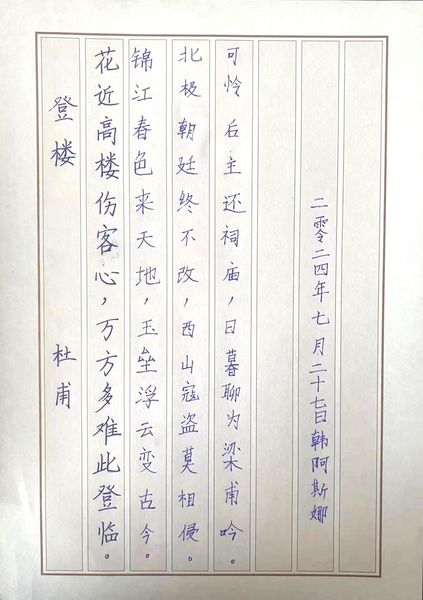 登楼 杜甫
花近高楼伤客心，万方多难此登临。
锦江春色来天地，玉垒浮云变古今。
北极朝廷终不改，西山寇盗莫相侵。
可怜后主还祠庙，日暮聊为梁甫吟。
二零二四年七月二十七日韩阿斯娜